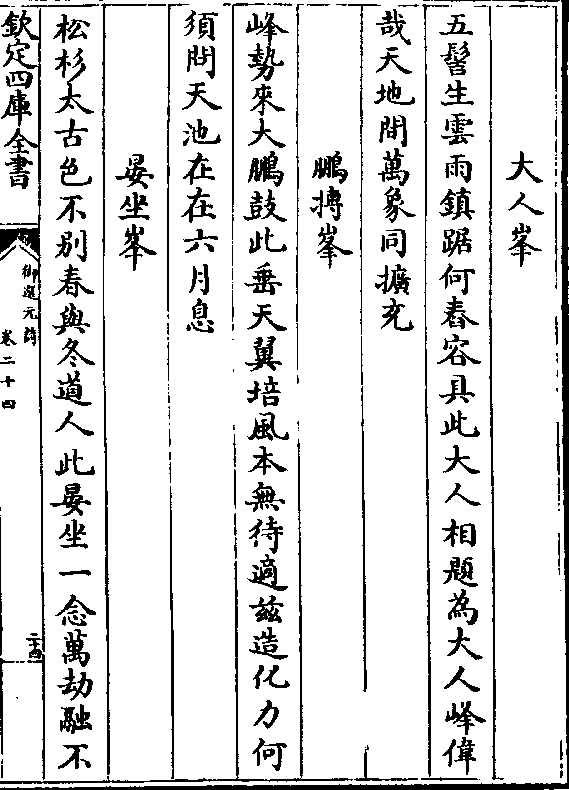 大人峯
五髻生雲雨鎮踞何舂容具此大人相題為大人峰偉
哉天地間萬象同擴充
鵬摶峯
峰勢來大鵬鼓此垂天翼培風本無待適兹造化力何
須問天池在在六月息
晏坐峯
松杉太古色不別春與冬道人此晏坐一念萬劫融不
欽定四庫全書
御選元詩
卷二十四
二十四